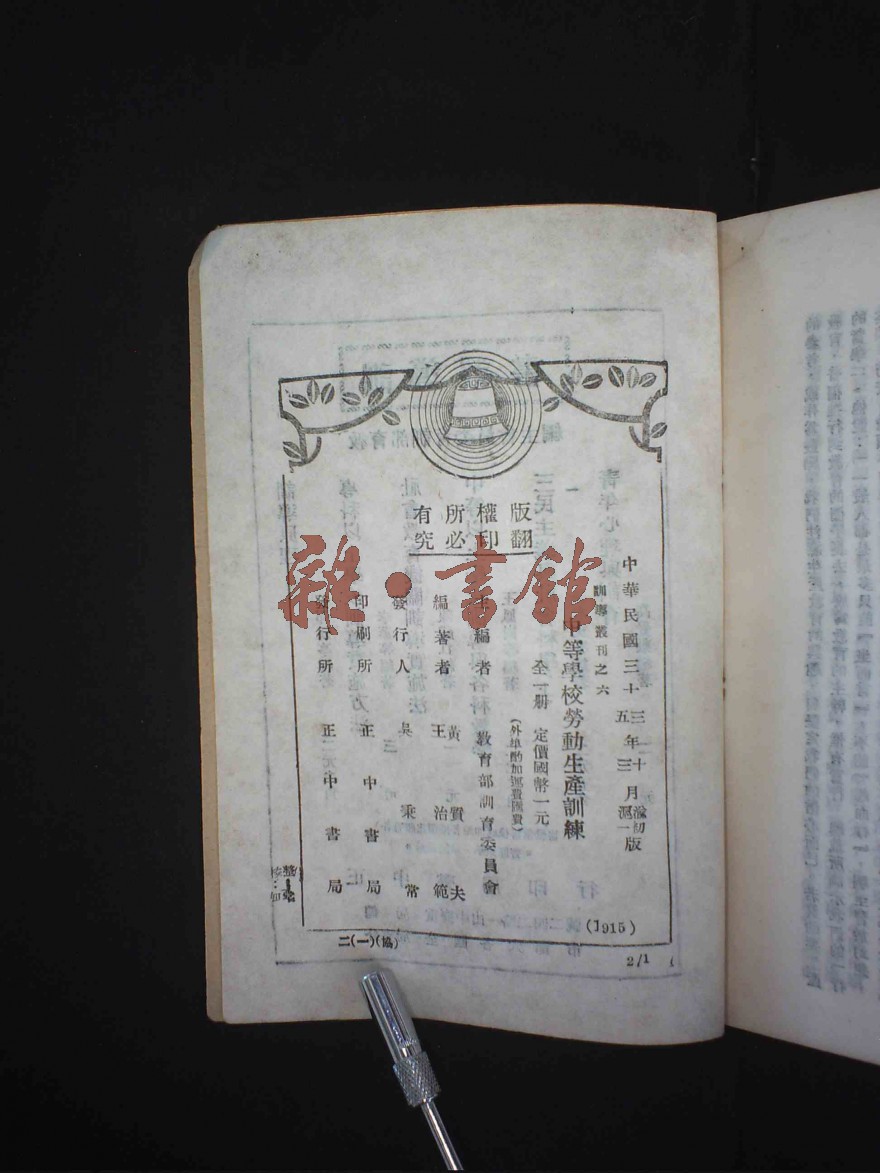 版權所有
翻印必究
中華民國三十三年十月渝初版
五 三 滬一
訓導叢刊之六
中等學校勞動生產訓練
全一册 定價國幣一元
(外埠酌加運費匯費)
編者 教育部訓育委員會
編著者 黃質夫
王治範
發行人 吳秉常
印刷所 正中書局
發行所 正中書局
(1915)
二(一)(協)
2/1
雜·書館